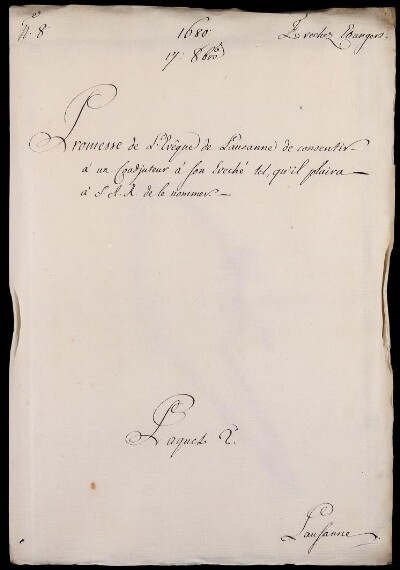 N.º 8
1680
Evechez Etrangers.
17. 8bre
Promesse de L'Evêque de Lausanne de consentir
à un Coadjuteur à son Eveché tel, qu'il plaira
à S. A. R. de le nommer.
Paquet 2.
Lausanne